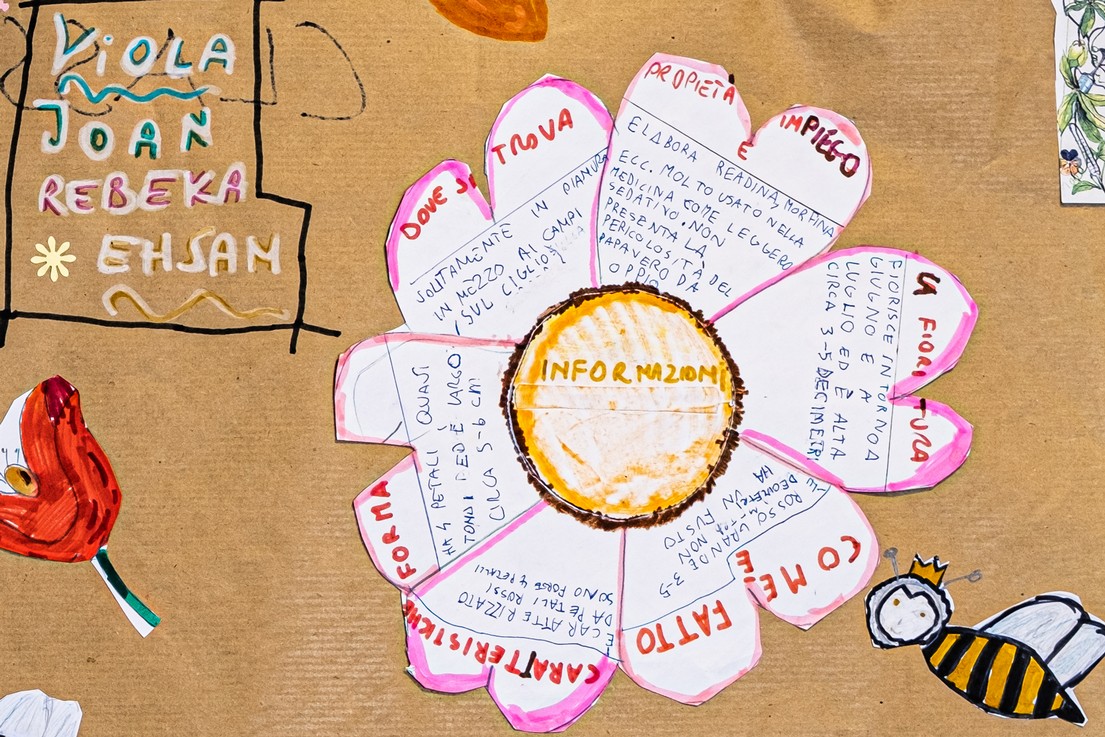 VIOLA
JOAN
REBEKA
EHSAN
INFORMAZIONI
DOVE SI TROVA
SOLITAMENTE IN PIANURA
IN MEZZO AI CAMPI
SUL CIGLIO
PROPIETÀ E IMPIEGO
ELABORA READINA, MORFINA
ECC. MOLTO USATO NELLA
MEDICINA COME LEGGERO
SEDATIVO. NON
PRESENTA LA
PERICOLOSITÀ DEL
PAPAVERO DA
OPPIO
LA FIORITURA
FIORISCE INTORNO A
GIUGNO E A
LUGLIO ED È ALTA
CIRCA 3-5 DECIMETRI
COME È FATTO
È ROSSO, GRANDE 3-5
HA
NON
FUSTO
CARATTERISTICHE
È CARATTERIZZATO
DA PETALI ROSSI
SONO FORSE 4 PETALI
FORMA
HA 4 PETALI QUASI
TONDI ED È LARGO
CIRCA 5-6 CM